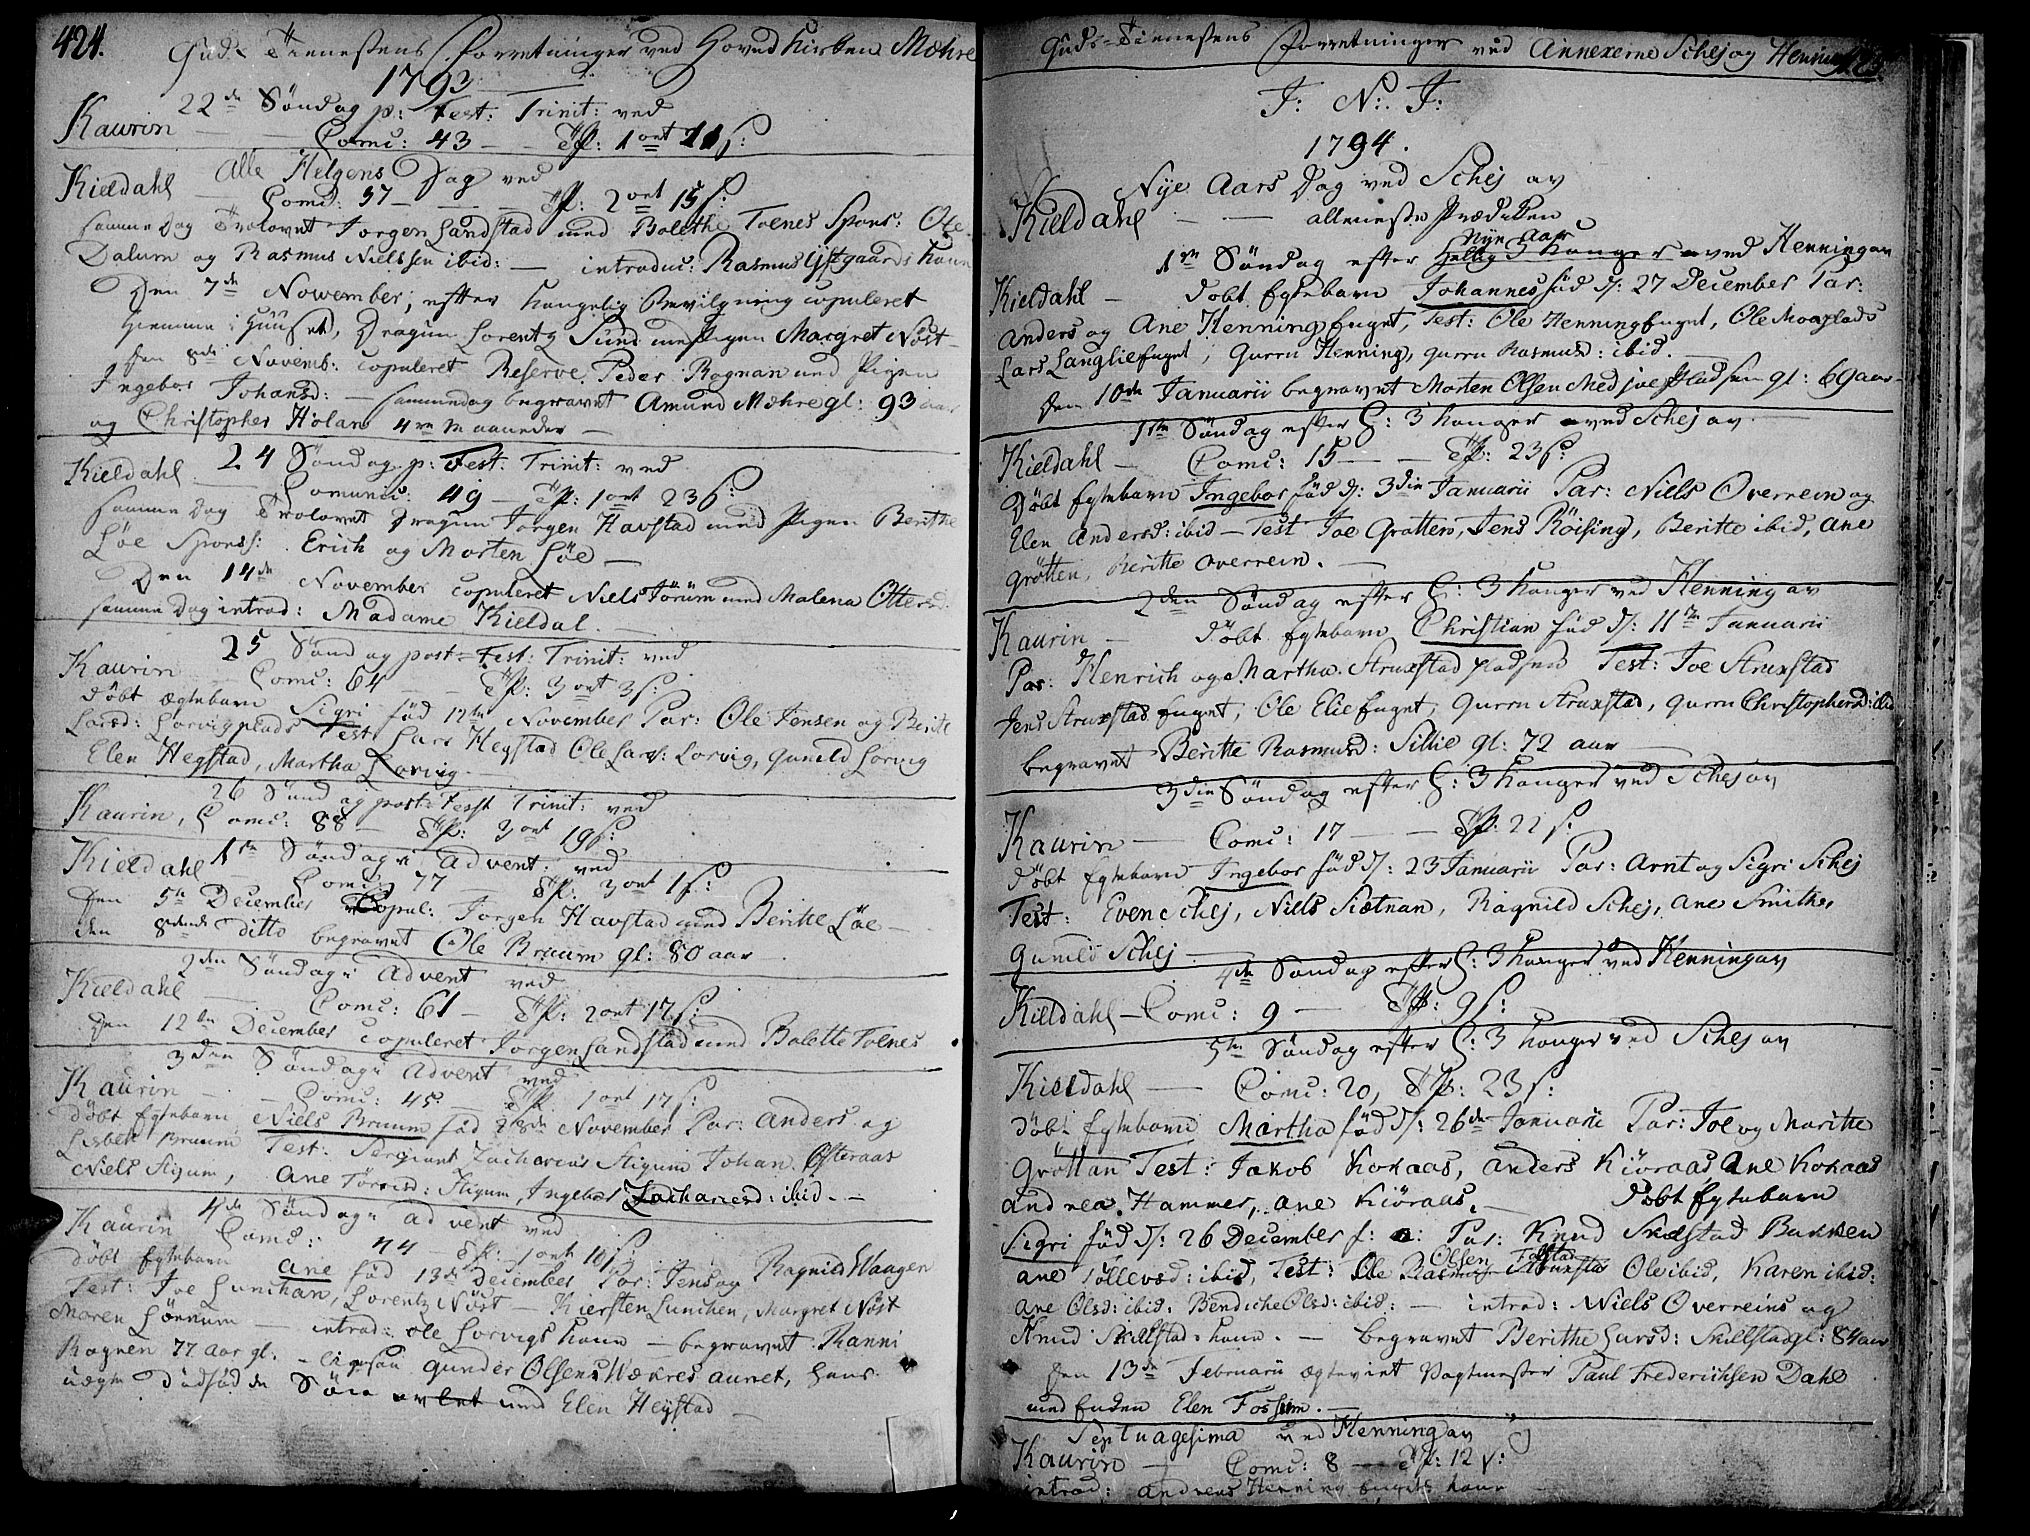 424.
Guds Tienestens Forretninger ved Hoved Kirken Mæhre
1793
22de Søndag p: Fest: Trinit: ved
Kaurin — Comu: 43 — Tfl: 1 ort 21 s:
Alle Helgens Dag ved
Kieldahl — Comu: 57 — Tfl: 2 ort 15 s:
samme Dag Trolovet Jørgen Landstad med Bolethe Toenes Spons: Ole
Dalum og Rasmus Nielssen ibid: — introduc: Rasmus Lystgaards Kone
Den 7de November, efter kongelig Bevilgning copuleret
hiemme i Huuset, Dragun Lorentz Sund med Pigen Margret Nøst
den 8de Novemb: copuleret Reserve Peder Rognan med Pigen
Ingebor Johansd: — samme dag begravet Amund Mæhre gl: 93 aar
og Christopher Holan 4re Maaneder —
24 Søndag p: Fest: Trinit: ved
Kieldahl — Comunic: 49 — Tfl: 1 ort 23 s:
samme Dag Trolovet Dragun Jørgen Havstad med Pigen Berithe
Løe Sponss: Erich og Morten Løe —
Den 14de November copuleret Niels Førum med Malena Ottersd:
samme Dag introd: Madame Kieldal. —
25 Søndag post Fest: Trinit: ved
Kaurin — Comu: 64 — Tfl: 3 ort 3 s:
døbt ægtebarn Sigri fød 12te November Par: Ole Jensen og Berite
Larsd: Lorvigplads Test: Lars Hegstad Ole Lars: Lorvig, Gunild Lorvig
Elen Hegstad, Martha Lorvig.
26 Søndag post Fest Trinit: ved
Kaurin, Comu: 88 — Tfl: 3 ort 19 s:
1te Søndag i Advent: ved
Kieldahl Comu: 77 — Tfl: 3 ort 1 s:
den 5te December Copul: Jørgen Havstad med Berithe Løe —
den 8de ditto begravet Ole Bruum gl: 80 aar
2den Søndag i Advent ved
Kieldahl — Comu: 61 — Tfl: 2 ort 17 s:
den 12te December copuleret Jørgen Landstad med Bolette Toenes
3den Søndag i Advent ved
Kaurin — Comu: 45 — Tfl: 1 ort 17 s:
døbt Egtebarn Niels Bruum fød 28de November Par: Anders og
Lisbeth Bruum Test: Sergiant Zacharias Stigum Johan Osteraas
Niels Stigum, Ane Törrisd: Stigum, Ingebor Zachariesd: ibid. —
4de Søndag i Advent ved
Kaurin Comu: 44 Tfl: 1 ort 10 s:
døbt Egtebarn Ane fød 13de December Par: Jens og Ragnild Waagen
Test: Joe Lunchan, Lorentz Nøst — Kiersten Lunchen, Margret Nøst
Maren Lönnum — introd: Ole Lorvigs Kone — begravet Ranni
Rognen 77 aar gl: — ligesaa Gunder Olsens Wækres
uægte dødfødde Søn avlet med Elen Hegstad
Guds-Tienestens Forretninger ved Annexerne Schej og Henning
J: N: J:
1794.
Nye Aars Dag ved Schej av
Kieldahl — — alleneste Prædiken
1te Søndag efter Nyt Aar ved Henning av
Kieldahl — døbt Egtebarn Johannes fød d: 27 December Par:
Anders og Ane Henning Enget, Test: Ole Henningenget, Ole Moeplads
Lars Langlieenget, Gurru Henning, Gurru Rasmusd: ibid.
den 10de Januarii begravet Morten Olsen Medjoe Pladsen gl: 69 aar —
1te Søndag efter H: 3 Konger ved Schej av
Kieldahl — Comu: 15 — Tfl: 23 s:
Døbt Egtebarn Ingebor fød d: 3die Januarii Par: Niels Overrein og
Elen Andersd: ibid — Test Joe Grøtten, Jens Röising, Beritte ibid, Ane
Grötten, Beritte Overrein. —
2den Søndag efter H: 3 Konger ved Henning av
Kaurin — Døbt Egtebarn Christian fød d: 11te Januarii
Par: Henrich og Martha Struxstad pladsen Test: Joe Struxstad
Jens Struxstad Enget, Ole Elieenget, Gurru Struxstad, Gurru Christophersd: ibid
begravet Beritte Rasmusd: Sillie gl: 72 aar
3die Søndag efter H: 3 Konger ved Schej av
Kaurin — Comu: 17 — — Tfl: 22 s:
Døbt Egtebarn Ingebor fød d: 23 Januarii Par: Arnt og Sigri Schej
Test: Even Schej, Niels Siætnan, Ragnild Schej, Ane Smithe,
Gunild Schej —
4de Søndag efter H: 3 Konger ved Henning av
Kieldahl — Comu: 9 — Tfl: 9 s:
5te Søndag efter H: 3 Konger ved Schej av
Kieldahl — Comu: 20, Tfl: 23 s:
døbt Egtebarn Martha fød d: 26de Januarii Par: Joe og Marithe
Grøttan Test: Jakob Kokaas, Anders Kiöraas Ane Kokaas
Andrea Hammer, Ane Kiöraas. — Døbt Egtebarn
Sigri fød d: 26 December f: a: Par: Knud Skiestad Bakken
Ane Töllevsd: ibid, Test: Ole Olsen Ole ibid, Karen ibid:
Ane Olsd: ibid: Bendicke Olsd: ibid: — introd: Niels Overreins og
Knud Skillstads Kone. — begravet Berithe Larsd: Skillstad gl: 84 aar
den 13de Februarii ægteviet Vagtmester Paul Frederichsen Dahl
med Enken Elen Fossum. —
Septuagesima ved Henning av
Kaurin — Comu: 8 — Tfl: 12 s:
introd: Andreas Henning Engets Kone —